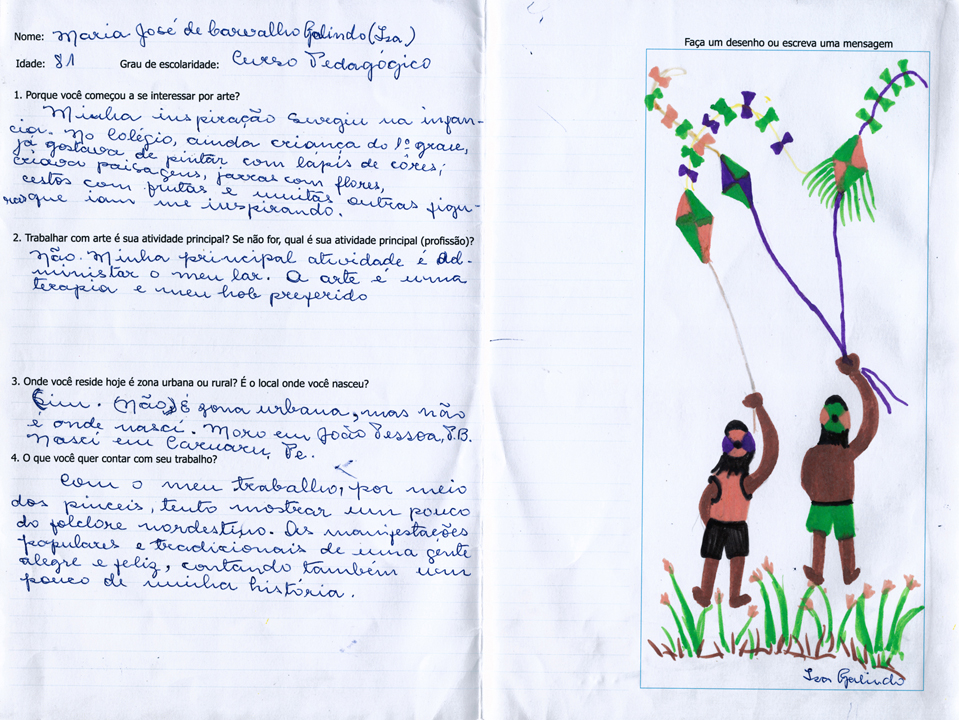 Nome: Maria José de Carvalho Galindo (Iza)
Idade: 81 Grau de escolaridade: Curso Pedagógico
1. Porque você começou a se interessar por arte?
Minha inspiração surgiu na infân-
cia. No Colégio, ainda criança do 1º grau,
já gostava de pintar com lápis de côres;
criava paisagens, jarras com flores,
cestos com frutas e muitas outras figu-
ras que iam me inspirando.
2. Trabalhar com arte é sua atividade principal? Se não for, qual é sua atividade principal (profissão)?
Não. Minha principal atividade é ad-
ministar o meu lar. A arte é uma
terapia e meu hob preferido
3. Onde você reside hoje é zona urbana ou rural? É o local onde você nasceu?
Sim. (Não) É zona urbana, mas não
é onde nasci. Moro em João Pessoa, P.B.
Nasci em Caruaru, Pe.
4. O que você quer contar com seu trabalho?
Com o meu trabalho, por meio
dos pinceis, tento mostrar um pouco
do folclore nordestino. As manifestações
populares e tradizionais de uma gente
alegre e feliz, contando também um
pouco de minha história.
Faça um desenho ou escreva uma mensagem
Iza Galindo